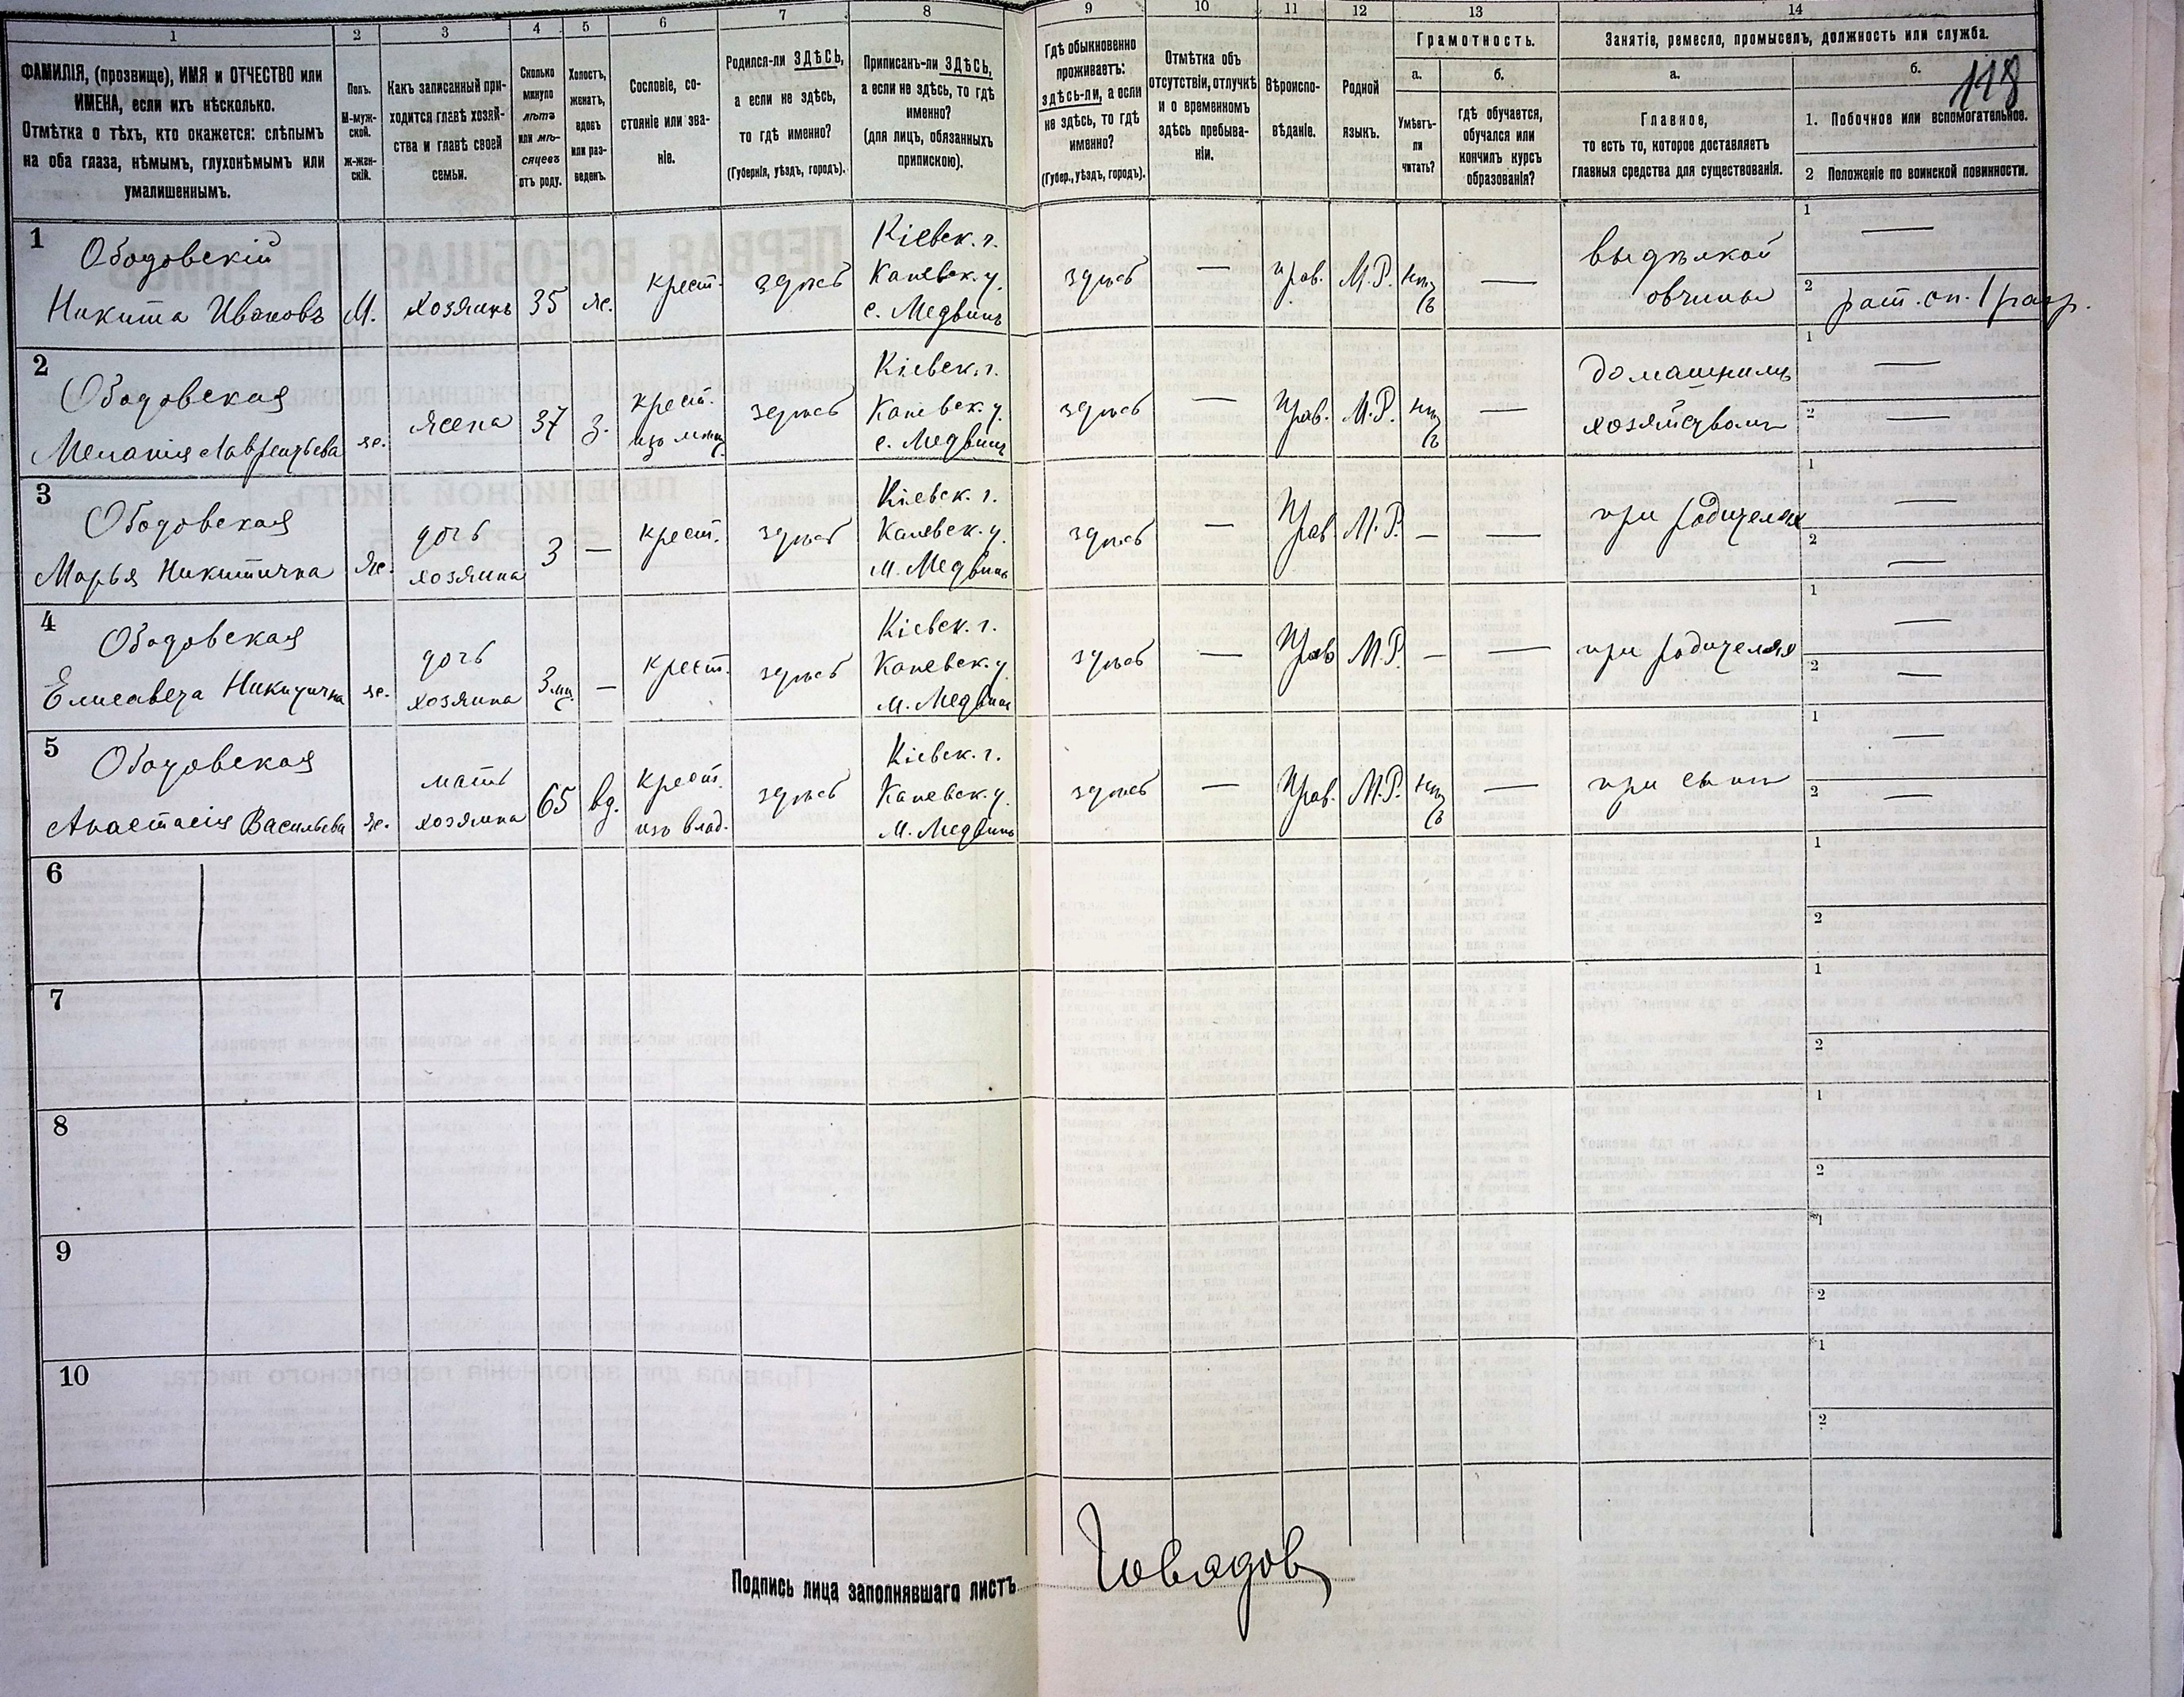 1 2 3 4 5 6 7 8 9 10 11 12 13 14
ФАМИЛІЯ, (прозвище), ИМЯ и ОТЧЕСТВО или
ИМЕНА, если ихъ нѣсколько.
Отмѣтка о тѣхъ, кто окажется: слѣпымъ
на оба глаза, нѣмымъ, глухонѣмымъ или
умалишеннымъ.
Полъ.
М-муж-
ской.
Ж-жен-
скій.
Какъ записанный при-
ходится главѣ хозяй-
ства и главѣ своей
семьи.
Сколько
минуло
лѣтъ
или мѣ-
сяцевъ
отъ роду.
Холостъ,
женатъ,
вдовъ
или раз-
веденъ.
Сословіе, со-
стояніе или зва-
ніе.
Родился-ли ЗДѢСЬ,
а если не здѣсь,
то гдѣ именно?
(Губернія, уѣздъ, городъ).
Приписанъ-ли ЗДѢСЬ,
а если не здѣсь, то гдѣ
именно?
(для лицъ, обязанныхъ
припискою).
Гдѣ обыкновенно
проживаетъ:
здѣсь-ли, а если
не здѣсь, то гдѣ
именно?
(Губер., уѣздъ, городъ).
Отмѣтка объ
отсутствіи, отлучкѣ
и о временномъ
здѣсь пребыва-
ніи.
Вѣроиспо-
вѣданіе.
Родной
языкъ.
Грамотность.
а.
Умѣетъ-
ли
читать?
б.
гдѣ обучается,
обучался или
кончилъ курсъ
образованія?
Занятіе, ремесло, промыселъ, должность или служба.
118
а.
Главное,
то есть то, которое доставляетъ
главныя средства для существованія.
б.
1. Побочное или вспомогательное.
2 Положеніе по воинской повинности.
1
Ободовскій
Никита Ивановъ
М.
хозяинъ
35
ж.
крест.
здѣсь
Кіевск. г.
Каневск. у.
с. Медвинъ
здѣсь
—
прав.
М.Р.
нѣтъ
—
выдѣлкой
овчины
1 —
2 рат. оп. 1 разр.
2
Ободовская
Меланія Лаврентьева
же.
жена
37
з.
крест.
здѣсь
Кіевск. г.
Каневск. у.
с. Медвинъ
здѣсь
—
Прав.
М.Р.
нѣтъ
—
домашнимъ
хозяйствомъ
1 —
2 —
3
Ободовская
Марья Никитична
же.
дочь
хозяина
3
—
крест.
здѣсь
Кіевск. г.
Каневск. у.
м. Медвинъ
здѣсь
—
Прав.
М.Р.
—
—
при родителях
1 —
2 —
4
Ободовская
Елисавета Никитична
же.
дочь
хозяина
3 м.
—
крест.
здѣсь
Кіевск. г.
Каневск. у.
м. Медвинъ
здѣсь
—
Прав
М.Р.
—
—
при родителях
1 —
2 —
5
Ободовская
Анастасія Васильева
же.
мать
хозяина
65
вд.
крест.
изъ влад.
здѣсь
Кіевск. г.
Каневск. у.
м. Медвинъ
здѣсь
—
Прав.
М.Р.
нѣтъ
—
при сынѣ
1 —
2 —
6
1
2
7
1
2
8
1
2
9
1
2
10
1
2
Подпись лица заполнявшаго листъ